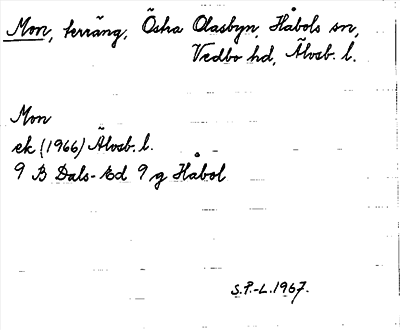 Mon, terräng, Östra Olasbyn, Håbols sn,
Vedbo hd, Älvsb. l.
Mon
ek (1966) Älvsb. l.
9 B Dals-Ed 9 g Håbol
S.P.-L. 1967.